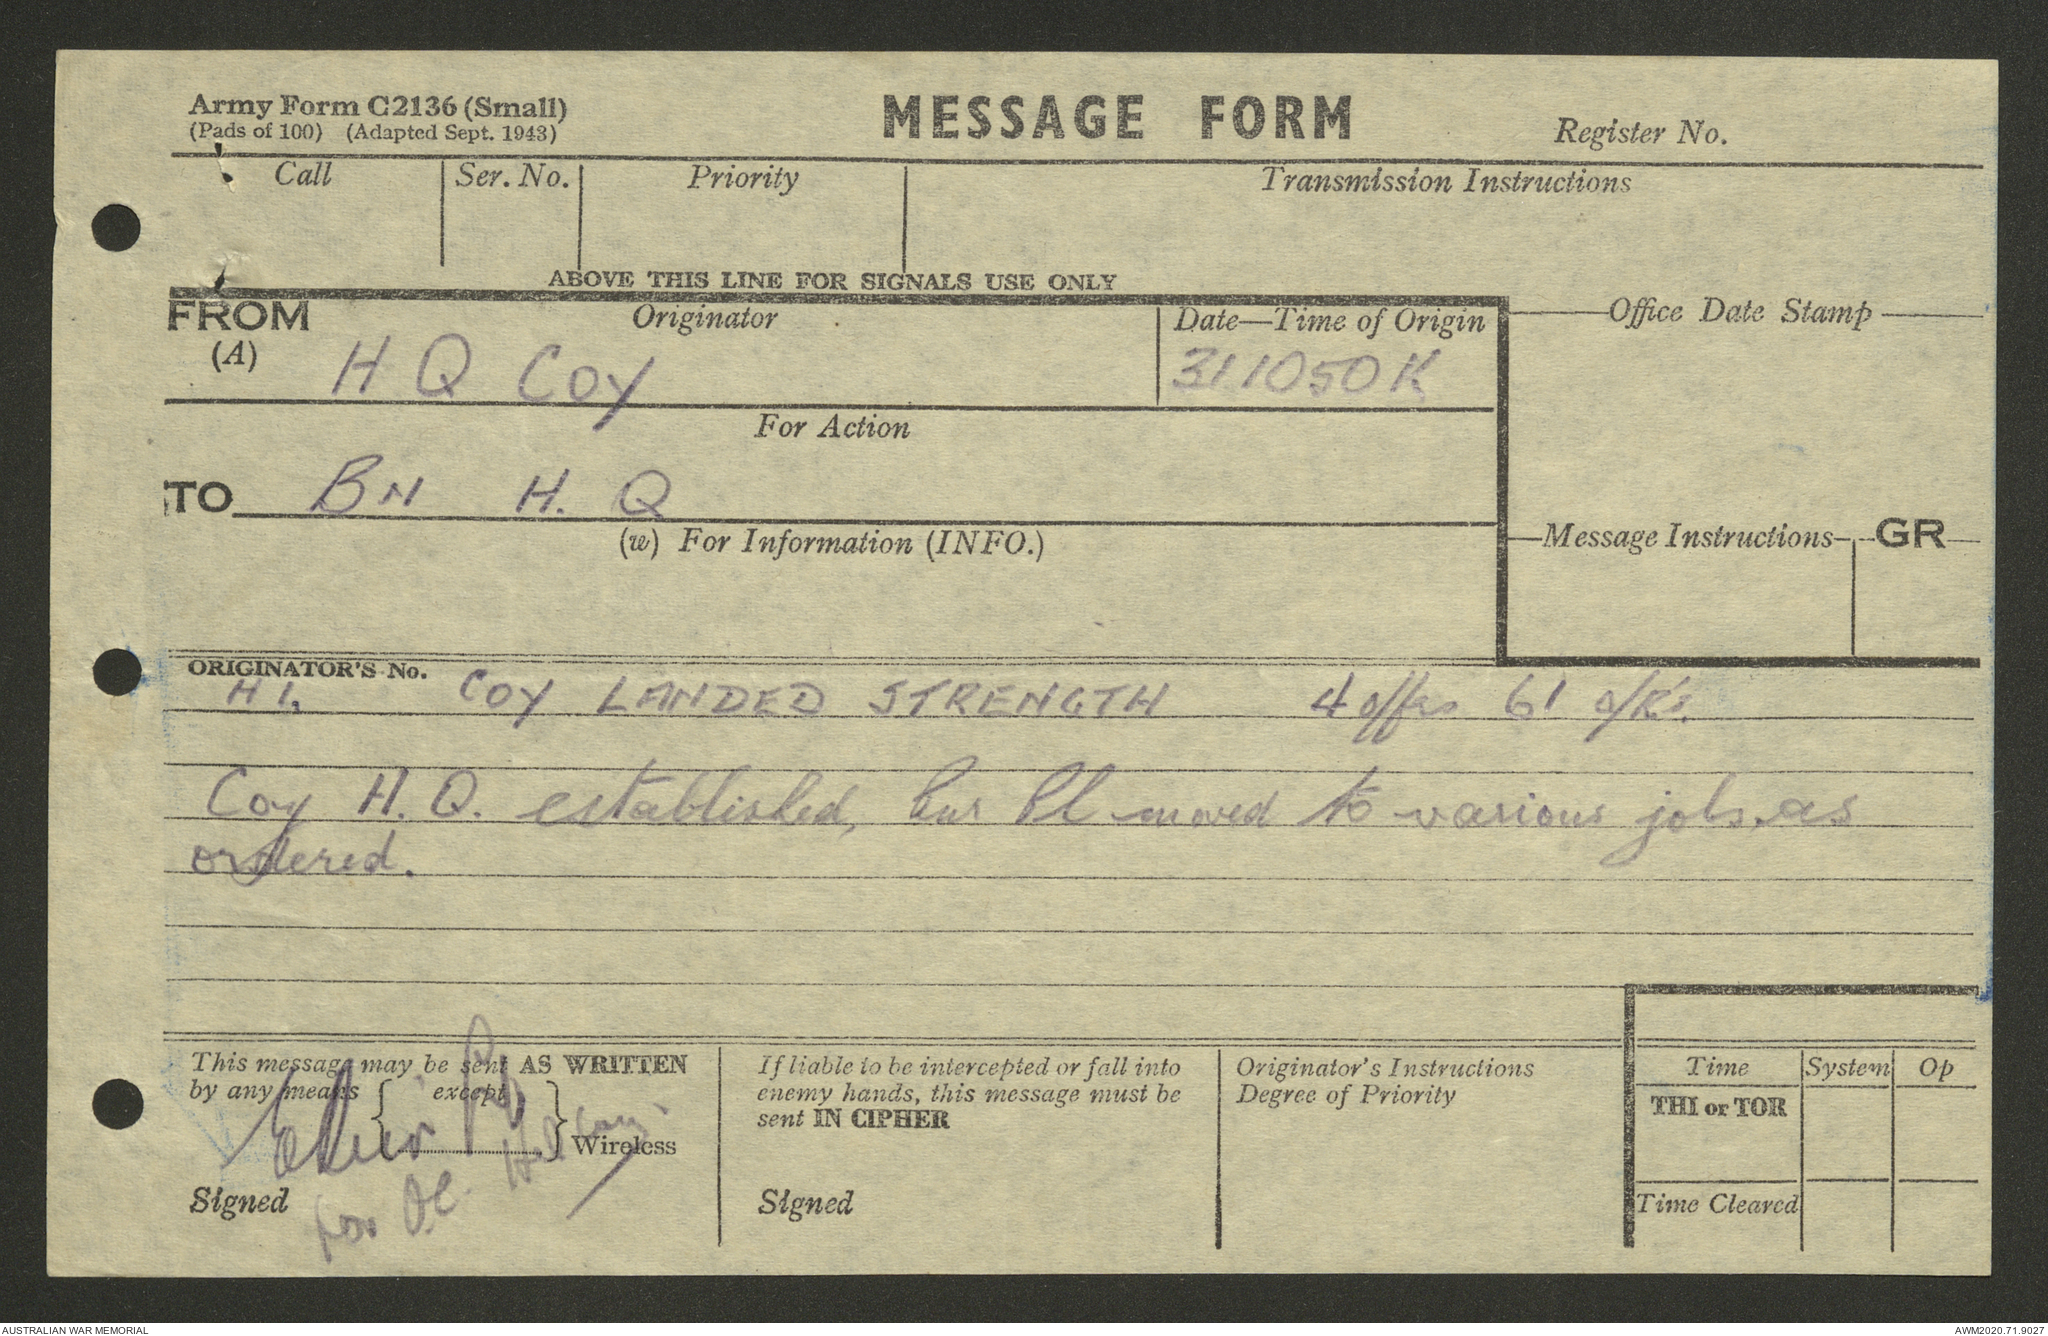 Army Form C2136 (Small)
(Pads of 100) (Adapted Sept. 1943)
MESSAGE FORM
Register No.
Call
Ser. No.
Priority
Transmission Instructions
ABOVE THIS LINE FOR SIGNALS USE ONLY
FROM
(A)
Originator
H Q COY
Date—Time of Origin
311050K
Office Date Stamp
For Action
TO
BN H. Q
(w) For Information (INFO.)
Message Instructions
GR
ORIGINATOR'S No.
H1. COY LANDED STRENGTH 4 offrs 61 o/R's.
Coy H.Q. established, Pl moved to various jobs as
ordered.
This message may be sent AS WRITTEN
by any means { except }
Wireless
Signed
for O.C. H.Q Coy.
If liable to be intercepted or fall into
enemy hands, this message must be
sent IN CIPHER
Signed
Originator's Instructions
Degree of Priority
Time
System
Op
THI or TOR
Time Cleared
AUSTRALIAN WAR MEMORIAL
AWM2020.71.9027